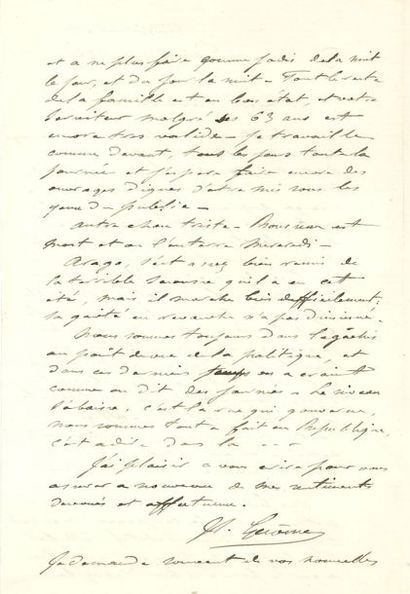 et a ne plus faire comme jadis de la nuit
le jour, et du jour la nuit - Tout le reste
de la famille est en bon état, et votre
serviteur malgré ses 63 ans est
encore très valide - je travaille
comme devant, tous les jours toute la
journée et j'espère faire encore des
ouvrages dignes d'etre mis sous les
yeux du public -
autre chose triste - est
mort et on l'enterre Mercredi -
Arago, s'est assez bien remis de
la terrible secousse qu'il a eu cet
été, mais il marche bien difficilement;
sa gaieté en revanche n'a pas diminué -
Nous sommes toujours dans le gachis
au point de vue de la politique, et
dans ces derniers temps on a craint
comme on dit des journées - Le niveau
s'abaisse, c'est la rue qui gouverne,
nous sommes tout a fait en République,
c'est a dire dans la - - -
J'ai plaisir a vous ecrire pour vous
assurer a nouveau de mes sentiments
devoués et affectueux.
Jl. Gerome
Je demande souvent de vos nouvelles